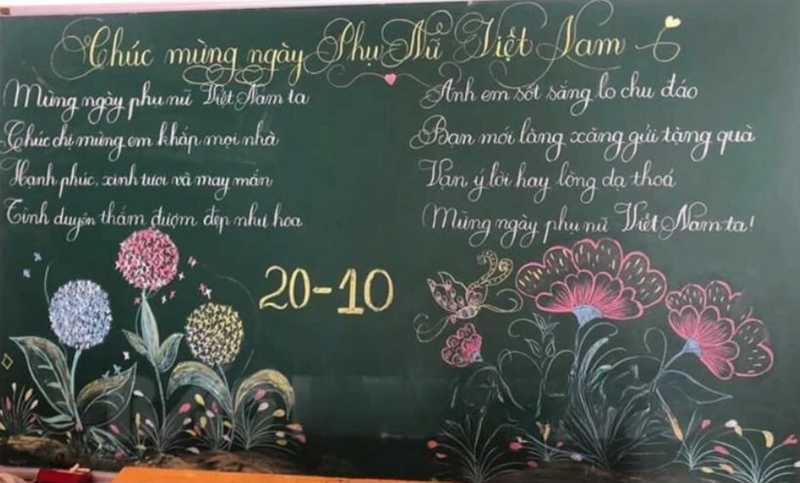 Chúc mừng ngày Phụ Nữ Việt Nam
Mừng ngày phụ nữ Việt Nam ta
Chúc chị mừng em khắp mọi nhà
Hạnh phúc, xinh tươi và may mắn
Tình duyên thắm đượm đẹp như hoa
Anh em sốt sắng lo chu đáo
Bạn mới làng xăng gửi tặng quà
Vạn ý lời hay lòng dạ thoả
Mừng ngày phụ nữ Việt Nam ta!
20-10